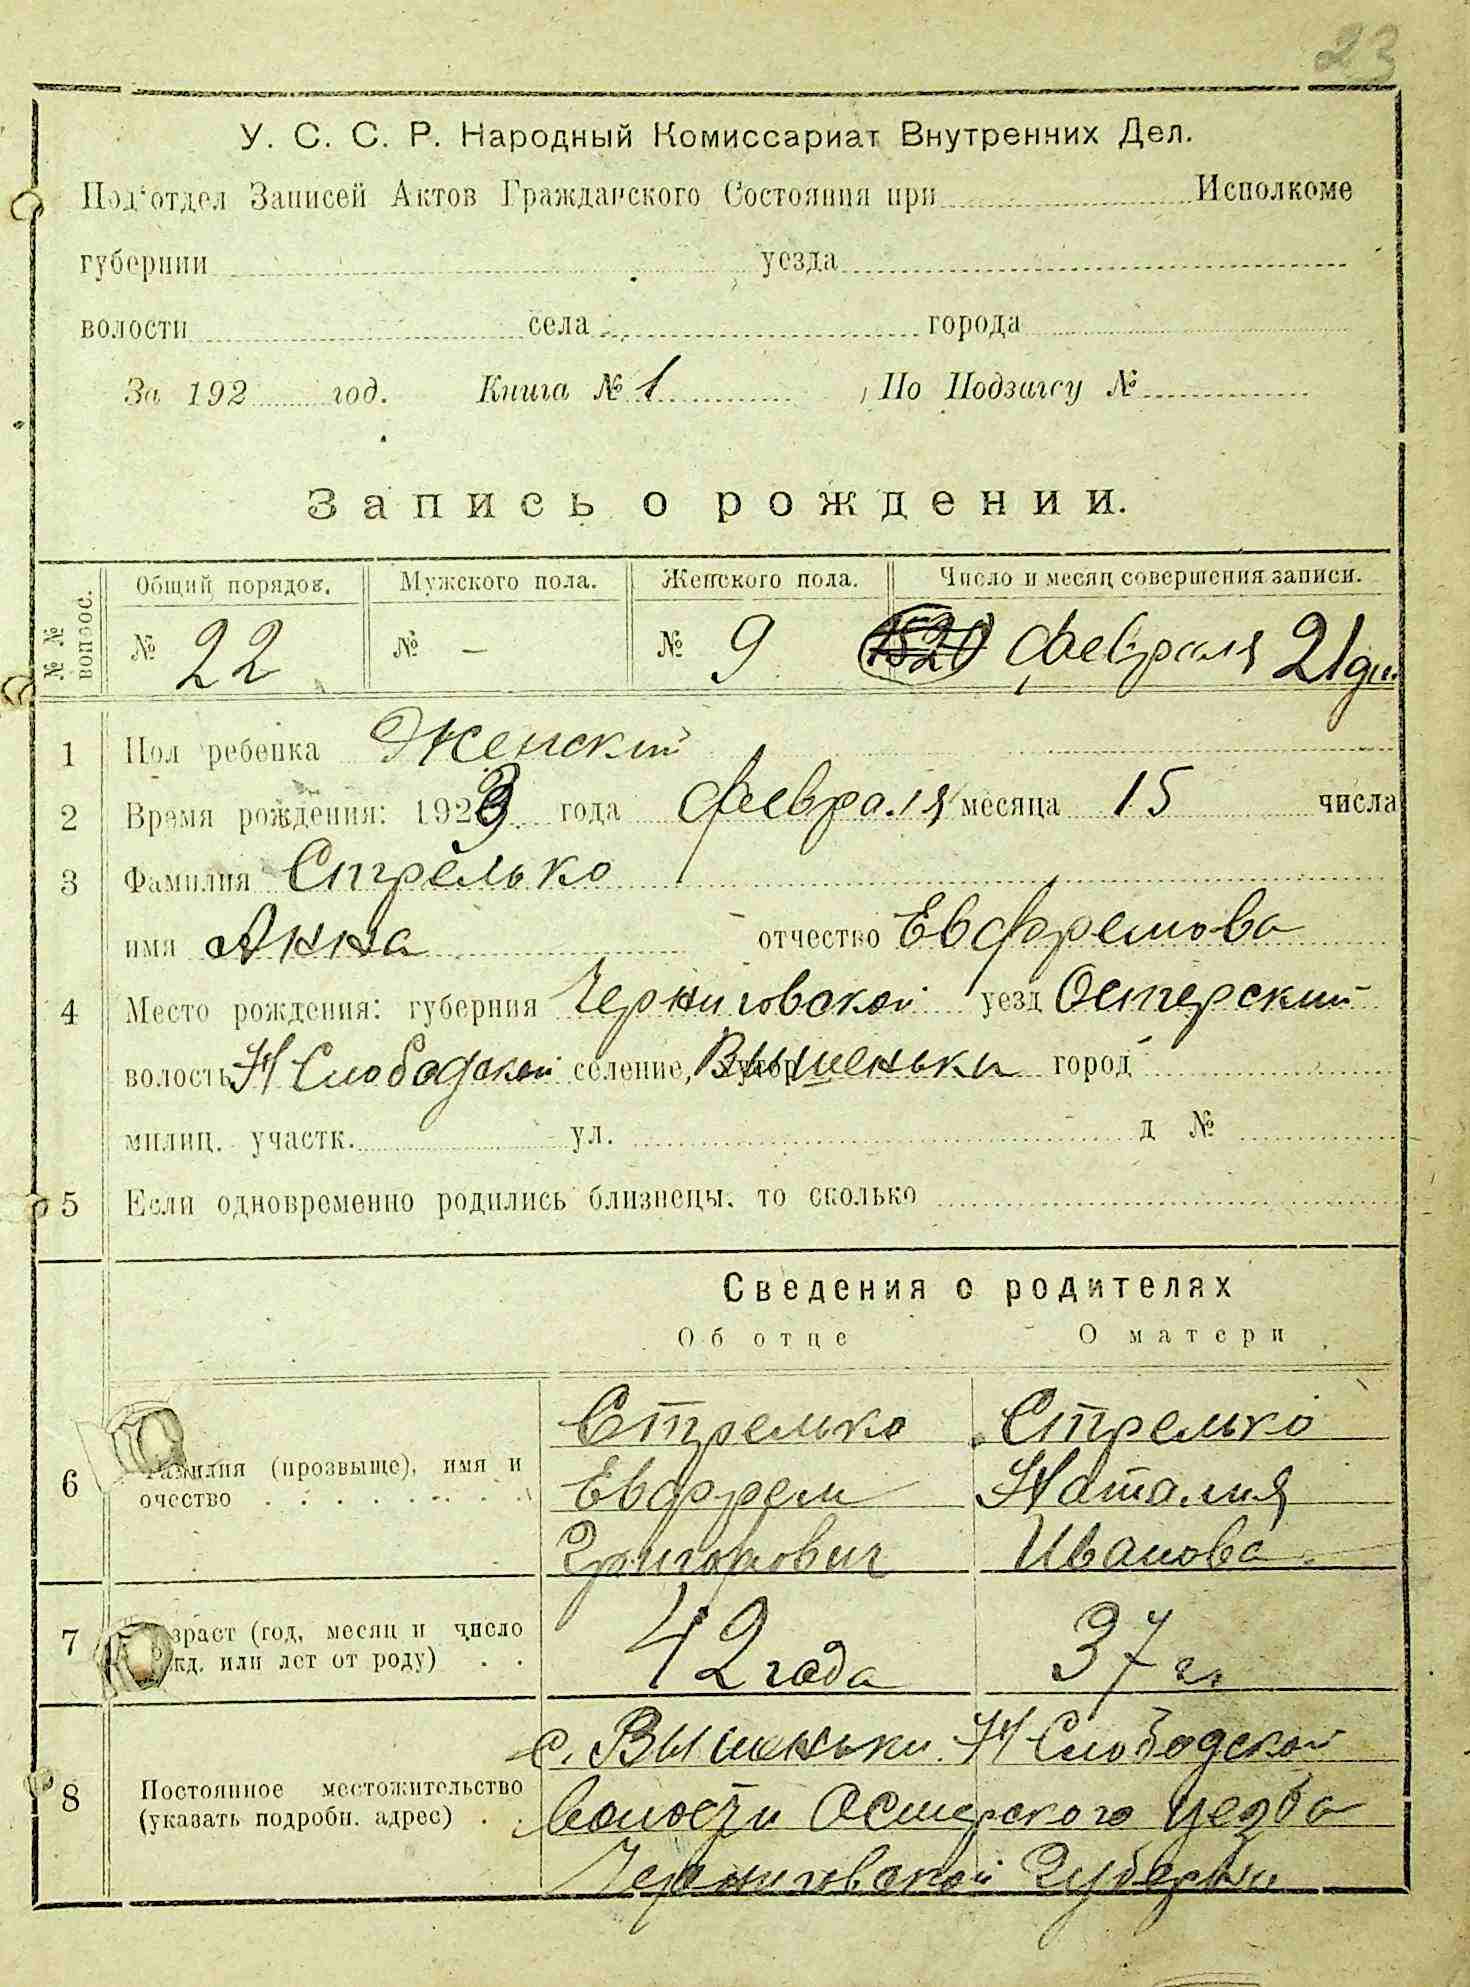 23
У. С. С. Р. Народный Комиссариат Внутренних Дел.
Под'отдел Записей Актов Гражданского Состояния при Исполкоме
губернии уезда
волости села города
За 192 год. Книга № 1 По Подзагсу №
Запись о рождении.
№ № вопрос. Общий порядов. Мужского пола. Женского пола. Число и месяц совершения записи.
№ 22 № - № 9 Февраля 21 дн.
1 Пол ребенка Женский
2 Время рождения: 1923 года февраля месяца 15 числа
3 Фамилия Стрелько
имя Анна отчество Евфремова
4 Место рождения: губерния Черниговской уезд Остерский
волость Н Слободской селение, хутор Вышеньки город
милиц. участк. ул. д №
5 Если одновременно родились близнецы. то сколько
Сведения о родителях
Об отце О матери
Стрелько Стрелько
6 Фамилия (прозвыще), имя и
очество Евфрем Наталия
Григорович Иванова
7 Возраст (год, месяц и число
рожд. или лет от роду) 42 года 37 г.
с. Вышеньки Н Слободской
8 Постоянное местожительство
(указать подробн. адрес) волости Остерского уезда
Черниговской Губернии